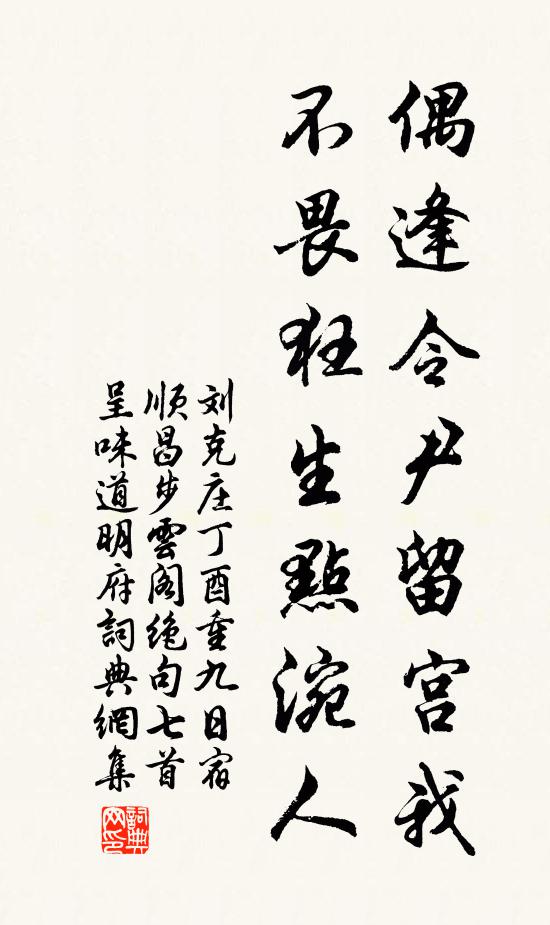 偶逢令尹留宫我
不畏狂生點涴人
刘克庄丁酉重九日宿
顺昌步雲阁绝句七首
呈味道明府詞典網集
詞典
网印